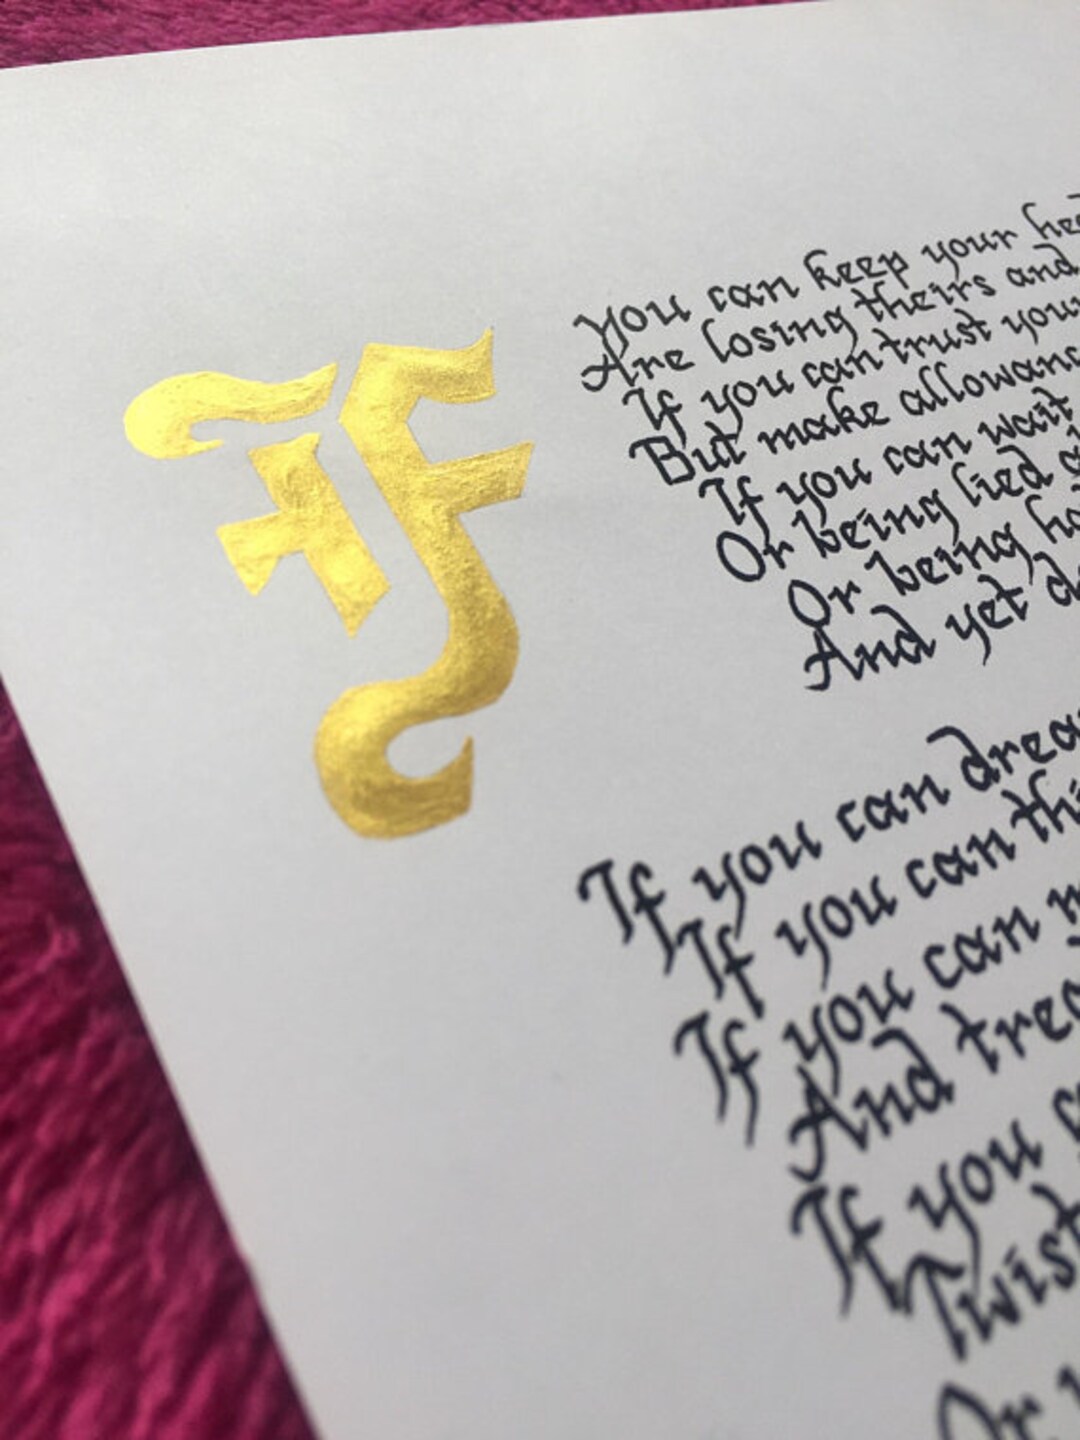 If
You can keep your
Are losing theirs and
If you can trust
But make
If you can wait
Or being lied
Or being
And yet
If you can
If you can
If you can
And
If you
Or